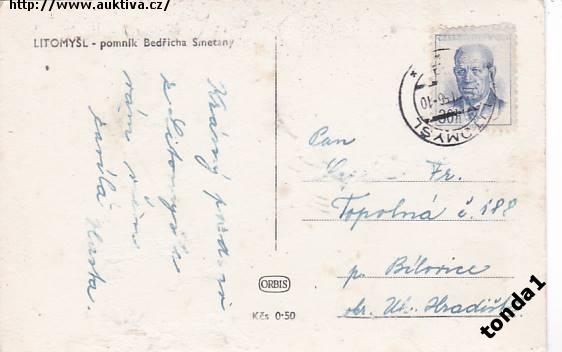 http://www.auktiva.cz/
LITOMYŠL - pomník Bedřicha Smetany
Krásný pozdrav
z Litomyšle
vám všem
posílá Vlasta.
ORBIS
Kčs 0·50
LITOMYŠL
Pan
Fr.
Topolná č. 188
p. Bílovice
okr. Uh. Hradiště
tonda1